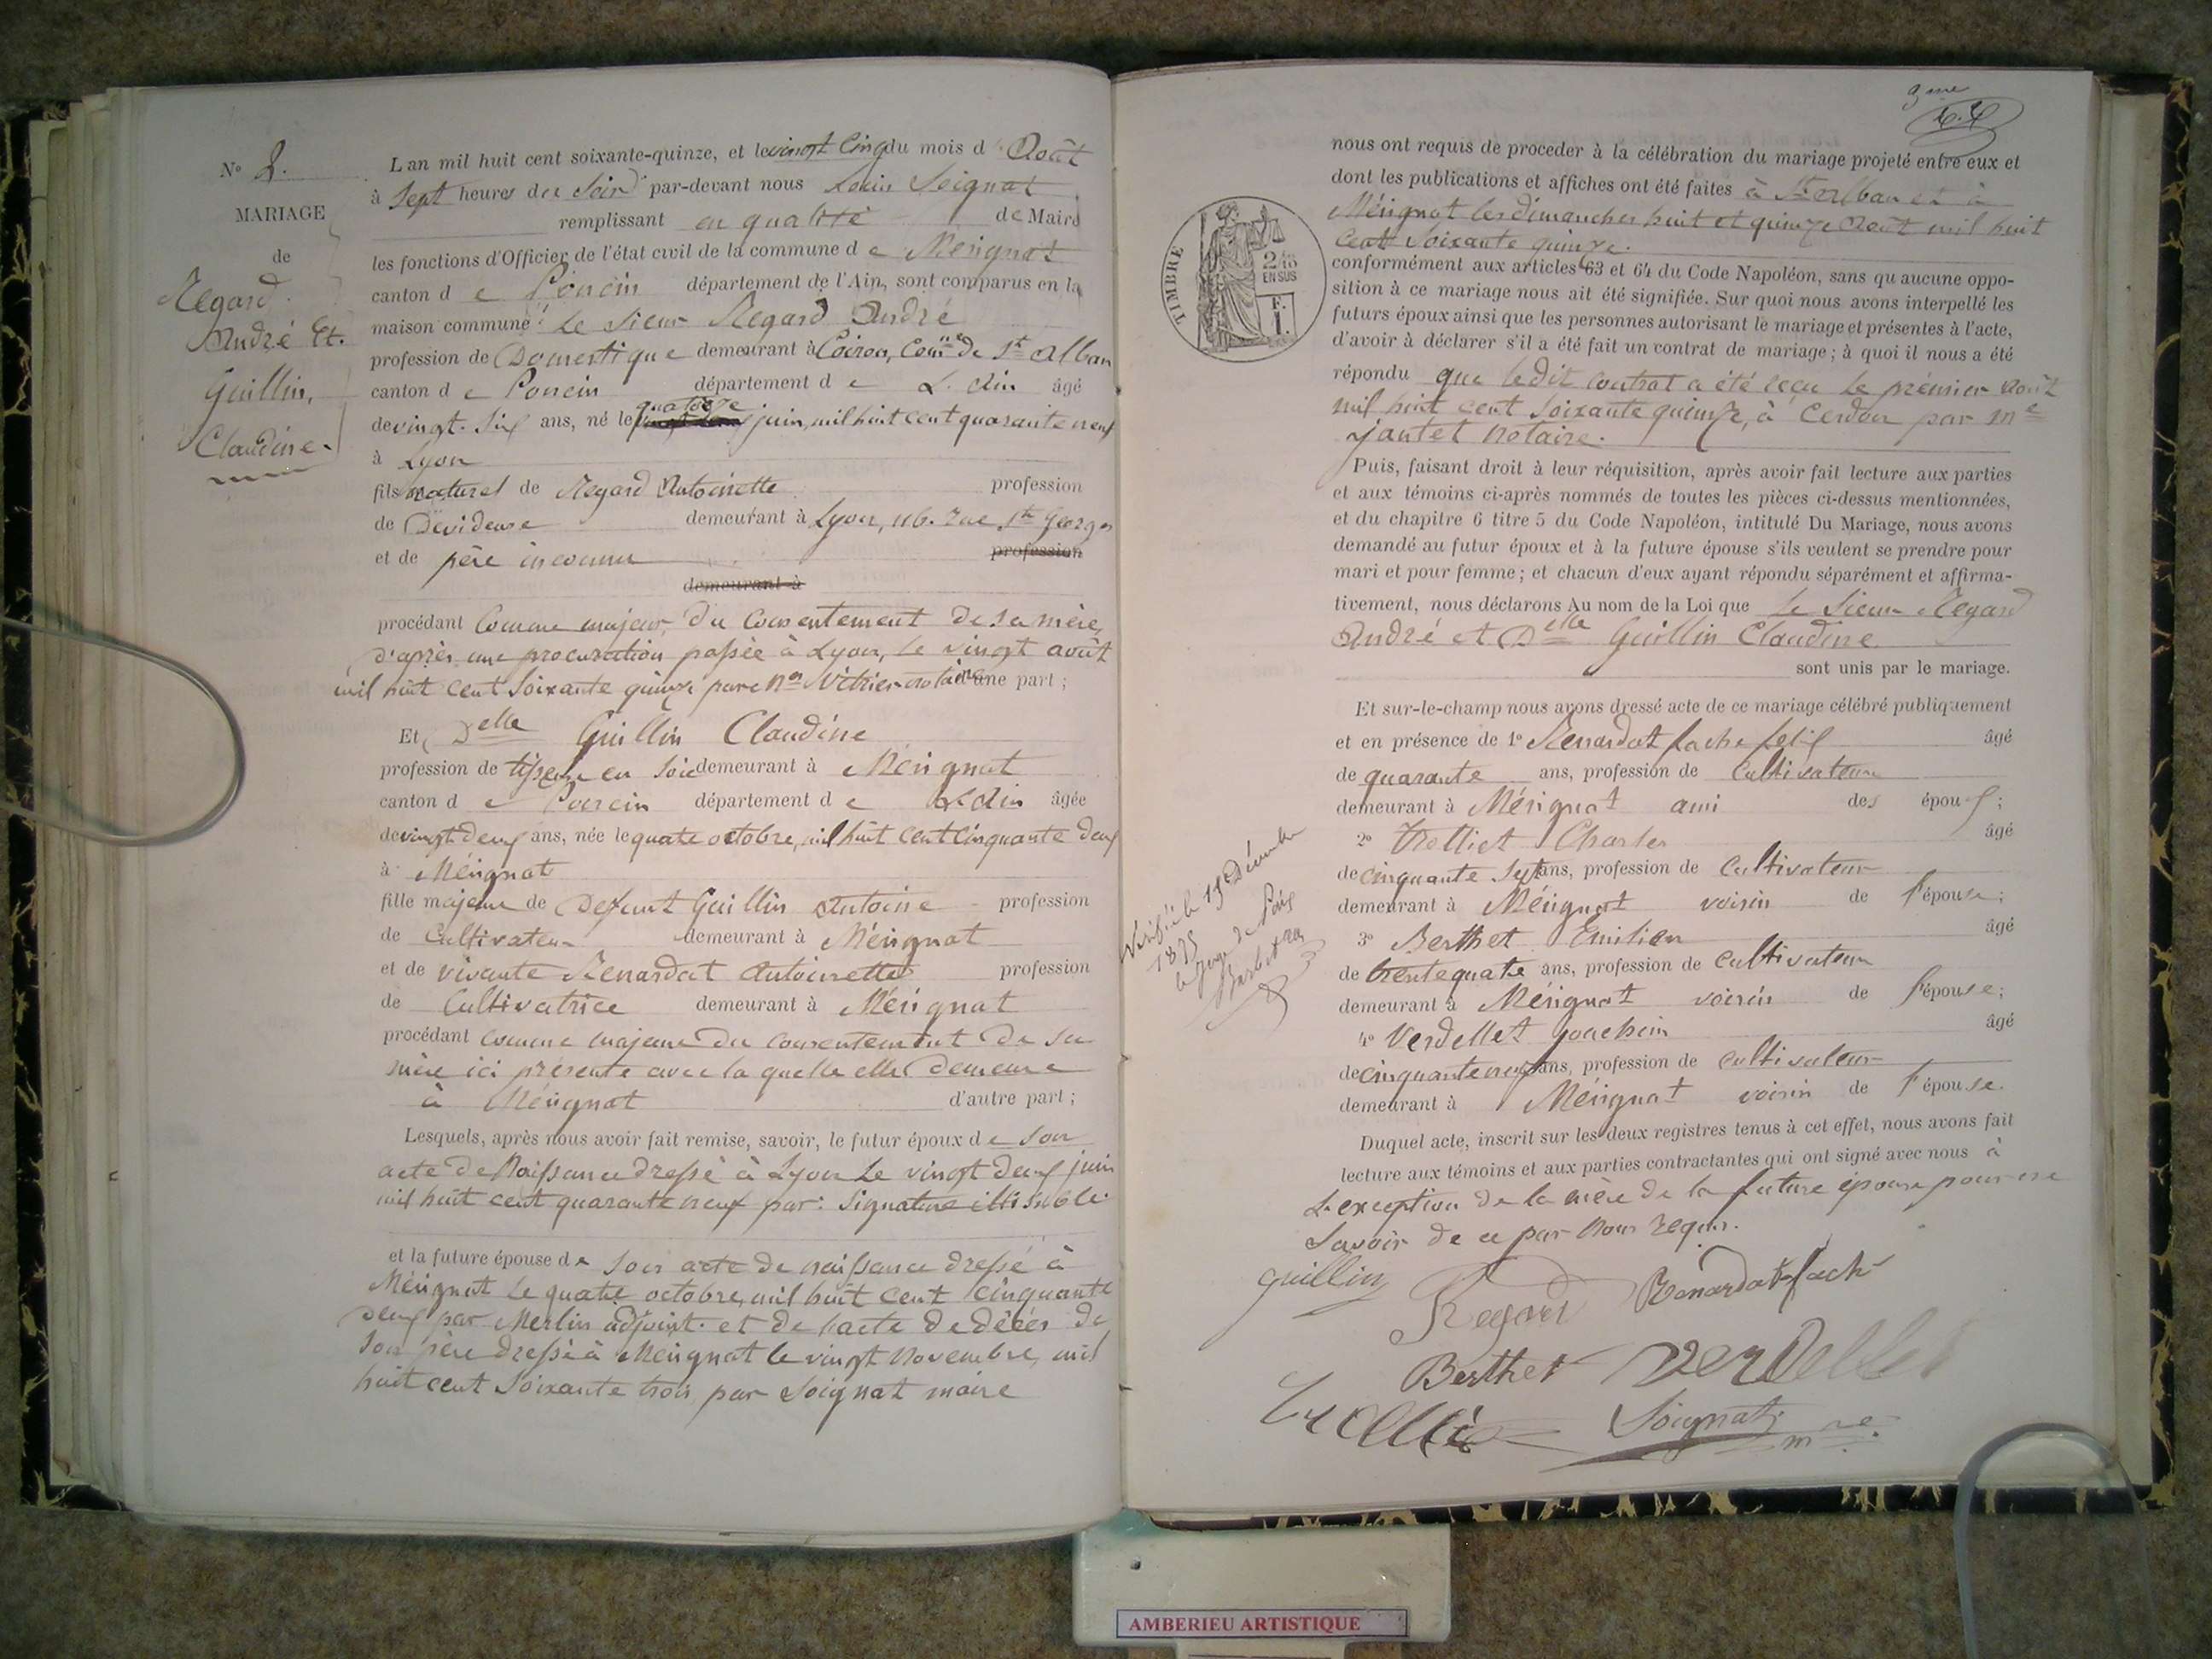 N° 2.
MARIAGE
de
Regard
André Et
Guillin,
Claudine
L'an mil huit cent soixante-quinze, et le vingt cinq du mois d'Août
à Sept heures du Soir par-devant nous Louis Soignat
remplissant en qualité de Maire
les fonctions d'Officier de l'état civil de la commune de Mérignat
canton de Poncin département de l'Ain, sont comparus en la
maison commune : Le Sieur Regard André
profession de Domestique demeurant à Coiron, Comne de St Alban
canton de Poncin département de L'Ain âgé
de vingt-Six ans, né le quatorze juin, mil huit cent quarante neuf
à Lyon
fils naturel de Regard Antoinette profession
de Dévideuse demeurant à Lyon, 116. rue St Georges
et de père inconnu profession
demeurant à
procédant Comme majeur, du consentement de sa mère,
d'après une procuration passée à Lyon, le vingt août
mil huit cent soixante quinze par Me Vitrier notaire d'une part ;
Et, Delle Guillin Claudine
profession de tisseuse en soie demeurant à Mérignat
canton de Poncin département de L'Ain âgée
de vingt deux ans, née le quatre octobre, mil huit cent cinquante deux
à Mérignat
fille majeure de Defunt Guillin Antoine profession
de Cultivateur demeurant à Mérignat
et de vivante Renardat Antoinette profession
de Cultivatrice demeurant à Mérignat
procédant comme majeure du consentement de sa
mère ici présente avec la quelle elle demeure
à Mérignat d'autre part ;
Lesquels, après nous avoir fait remise, savoir, le futur époux de son
acte de Naissance dressé à Lyon Le vingt deux juin
mil huit cent quarante neuf par : signature illisible
et la future épouse de son acte de naissance dressé à
Mérignat le quatre octobre, mil huit cent cinquante
deux par Merlin adjoint. et de l'acte de décès de
son père dressé à Mérignat le vingt Novembre, mil
huit cent soixante trois par Soignat maire
9me
TIMBRE
2/10
EN SUS
F.
1.
nous ont requis de procéder à la célébration du mariage projeté entre eux et
dont les publications et affiches ont été faites à St Alban et à
Mérignat les dimanches huit et quinze Août mil huit
cent soixante quinze.
conformément aux articles 63 et 64 du Code Napoléon, sans qu'aucune oppo-
sition à ce mariage nous ait été signifiée. Sur quoi nous avons interpellé les
futurs époux ainsi que les personnes autorisant le mariage et présentes à l'acte,
d'avoir à déclarer s'il a été fait un contrat de mariage ; à quoi il nous a été
répondu que le dit contrat a été reçu Le prémier Août
mil huit cent soixante quinze, à Cerdon par Me
jantet Notaire.
Puis, faisant droit à leur réquisition, après avoir fait lecture aux parties
et aux témoins ci-après nommés de toutes les pièces ci-dessus mentionnées,
et du chapitre 6 titre 5 du Code Napoléon, intitulé Du Mariage, nous avons
demandé au futur époux et à la future épouse s'ils veulent se prendre pour
mari et pour femme ; et chacun d'eux ayant répondu séparément et affirma-
tivement, nous déclarons Au nom de la Loi que Le Sieur Regard
André et Delle Guillin Claudine
sont unis par le mariage.
Et sur-le-champ nous avons dressé acte de ce mariage célébré publiquement
et en présence de 1° Renardat fache félix âgé
de quarante ans, profession de Cultivateur
demeurant à Mérignat ami des époux ;
2° Trolliet Charles âgé
de cinquante Sept ans, profession de Cultivateur
demeurant à Mérignat voisin de l'épouse ;
3° Berthet Emilien âgé
de trente quatre ans, profession de Cultivateur
demeurant à Mérignat voisin de l'épouse ;
4° Verdellet Joachim âgé
de cinquante neuf ans, profession de Cultivateur
demeurant à Mérignat voisin de l'épouse.
Duquel acte, inscrit sur les deux registres tenus à cet effet, nous avons fait
lecture aux témoins et aux parties contractantes qui ont signé avec nous à
L'exception de la mère de la future épouse pour ne
Savoir de ce par Nous requis.
Vérifié le 19 Décembre
1875
le Juge de Paix
guillin Regard Renardat fache
Berthet Verdellet
Trolliet Soignat mre
AMBERIEU ARTISTIQUE